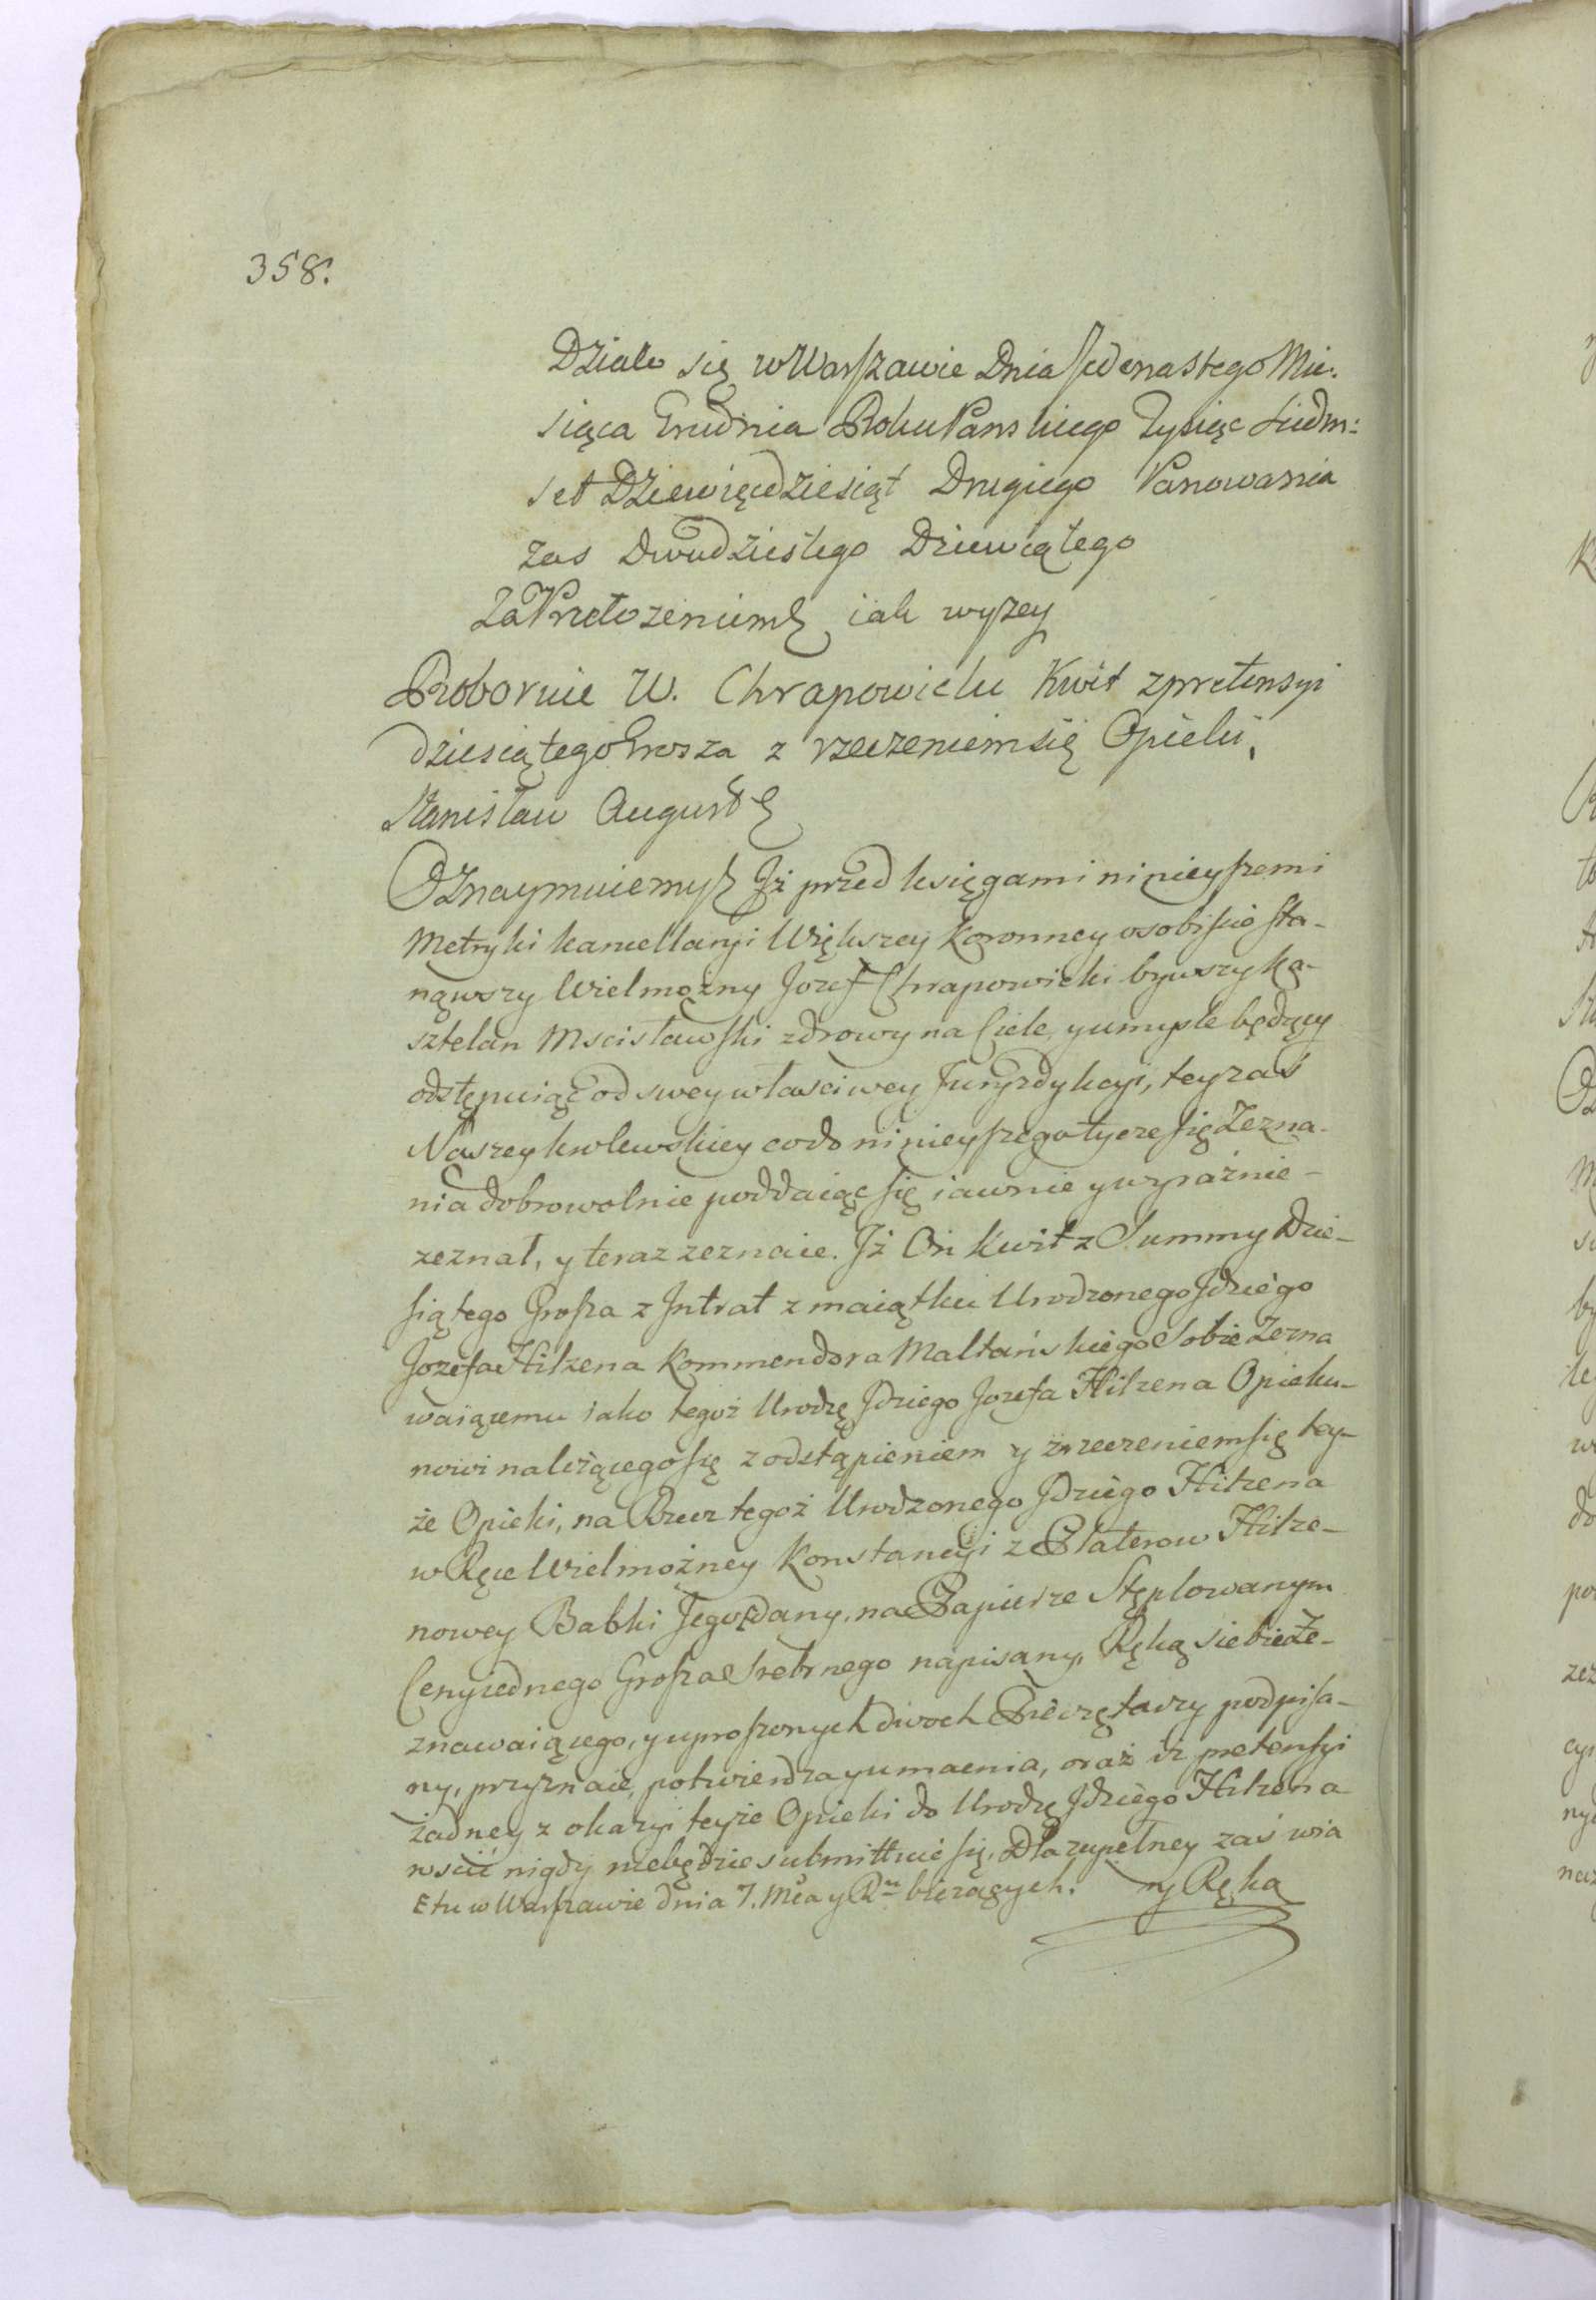 358.
Działo się w Warszawie Dnia Jedenastego Mie:
siąca Grudnia Roku Panskiego Tysiąc siedm:
set Dziewięcdziesiąt Drugiego Panowania
zas Dwudziestego Dziewiątego
Za Przełozeniem& iak wyzey
Roboruie W. Chrapowicki Kwit z pretensyi
dziesiątego Grosza z rzeczeniem się Opieki,
Stanisław August &
Oznaymuiemy & Jż przed księgami ninieyszemi
Metryki kancellaryi Większey Koronney osobiście sta-
nąwszy Wielmożny Jozef Chrapowicki bywszy ka-
sztelan Mscisławski zdrowy na Ciele y umysle będący
odstępuiąc od swey własciwey Juryzdykcyi, tey zaś
Naszey krolewskiey co do ninieyszego tycze się Zezna-
nia dobrowolnie poddaiąc się iawnie y wyraźnie-
zeznał, y teraz zeznaie. Jż On kwit z Summy Dzie-
siątego Grosza z Intrat z maiątku Urodzonego Jdziego
Jozefa Hilzena Kommendora Maltańskiego Sobie Zezna
waiącemu iako tegoż Urodzę Jdziego Jozefa Hilzena Opieku-
nowi należącego się z odstąpieniem y zrzeczeniem się tey-
że Opieki, na Rzecz tegoż Urodzonego Jdziego Hilzena
w Ręce Wielmożney Konstancyi z Platerow Hilze-
nowey Babki Jego dany, na Papierze Stęplowanym
Ceny iednego Grosza Srebrnego napisany, Ręką siebie Ze-
znawaiącego, y uproszonych dwoch Pieczętarzy podpisa-
ny, przyznaie, potwierdza y umacnia, oraz iż pretensyi
żadney z okazyi teyże Opieki do Urodzę Jdziego Hilzena
rościć nigdy niebędzie submittuie się, Dla zupełney zaś wia
E tu w Warszawie dnia 7. Mca y Ru bieżących. ry Ręką